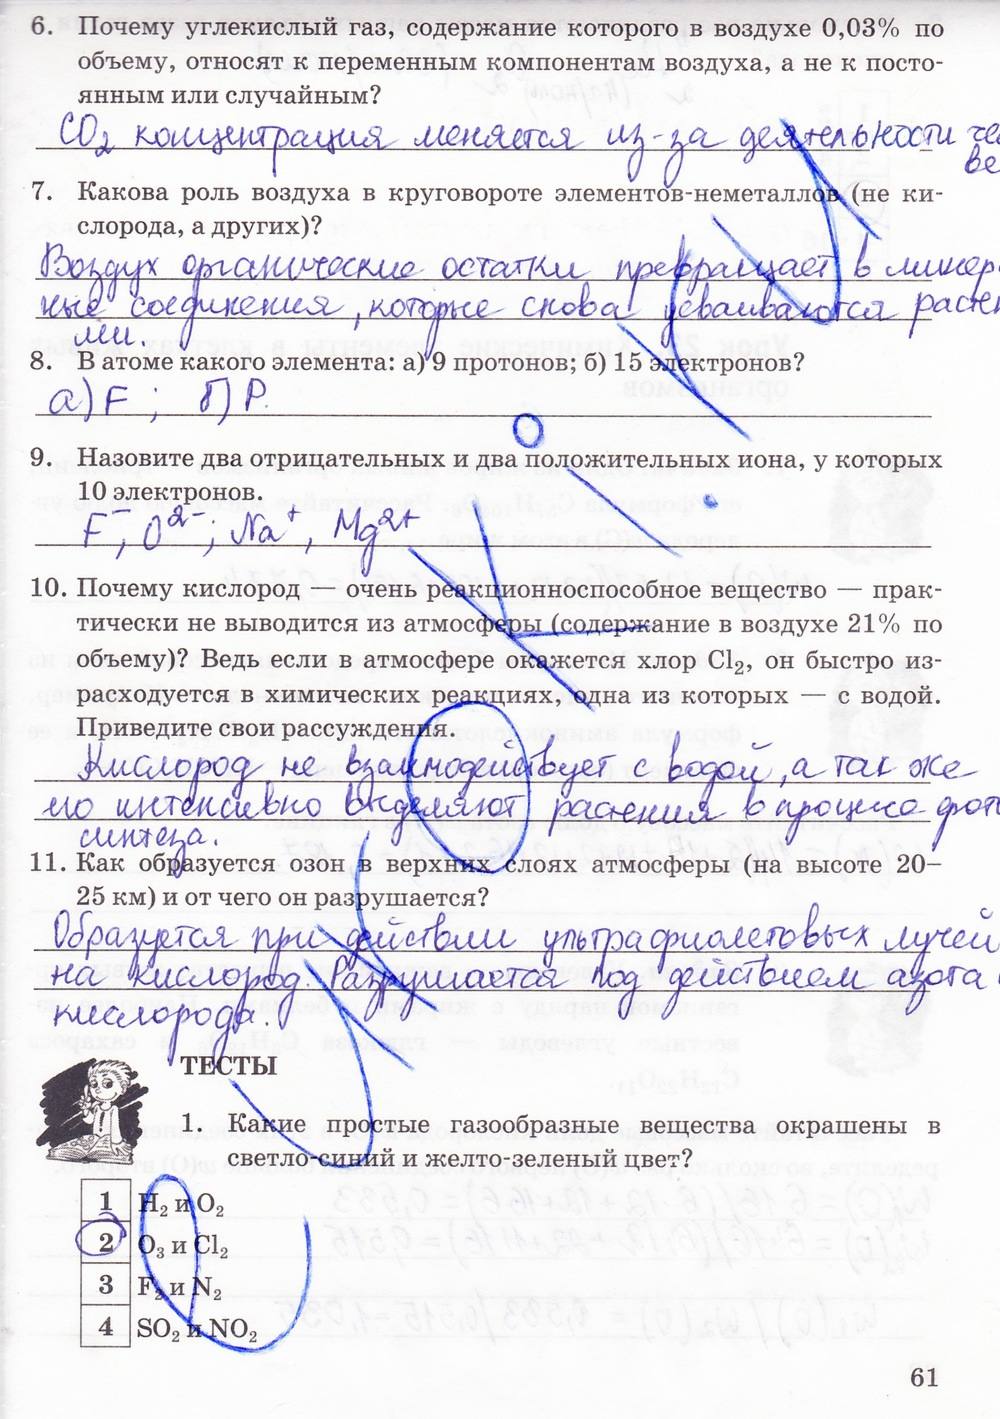 6. Почему углекислый газ, содержание которого в воздухе 0,03% по
объему, относят к переменным компонентам воздуха, а не к посто-
янным или случайным?
CO₂ концентрация меняется из-за деятельности чело
ве
7. Какова роль воздуха в круговороте элементов-неметаллов (не ки-
слорода, а других)?
Воздух органические остатки превращает в минер
ные соединения, которые снова усваиваются растен
ми.
8. В атоме какого элемента: а) 9 протонов; б) 15 электронов?
а) F ; б) P.
9. Назовите два отрицательных и два положительных иона, у которых
10 электронов.
F⁻, O²⁻; Na⁺, Mg²⁺
10. Почему кислород — очень реакционноспособное вещество — прак-
тически не выводится из атмосферы (содержание в воздухе 21% по
объему)? Ведь если в атмосфере окажется хлор Cl₂, он быстро из-
расходуется в химических реакциях, одна из которых — с водой.
Приведите свои рассуждения.
Кислород не взаимодействует с водой, а так же
его интенсивно выделяют растения в процессе фото
синтеза.
11. Как образуется озон в верхних слоях атмосферы (на высоте 20–
25 км) и от чего он разрушается?
Образуется при действии ультрафиолетовых лучей
на кислород. Разрушается под действием азота
кислорода.
ТЕСТЫ
1. Какие простые газообразные вещества окрашены в
светло-синий и желто-зеленый цвет?
1 H₂ и O₂
2 O₃ и Cl₂
3 F₂ и N₂
4 SO₂ и NO₂
61